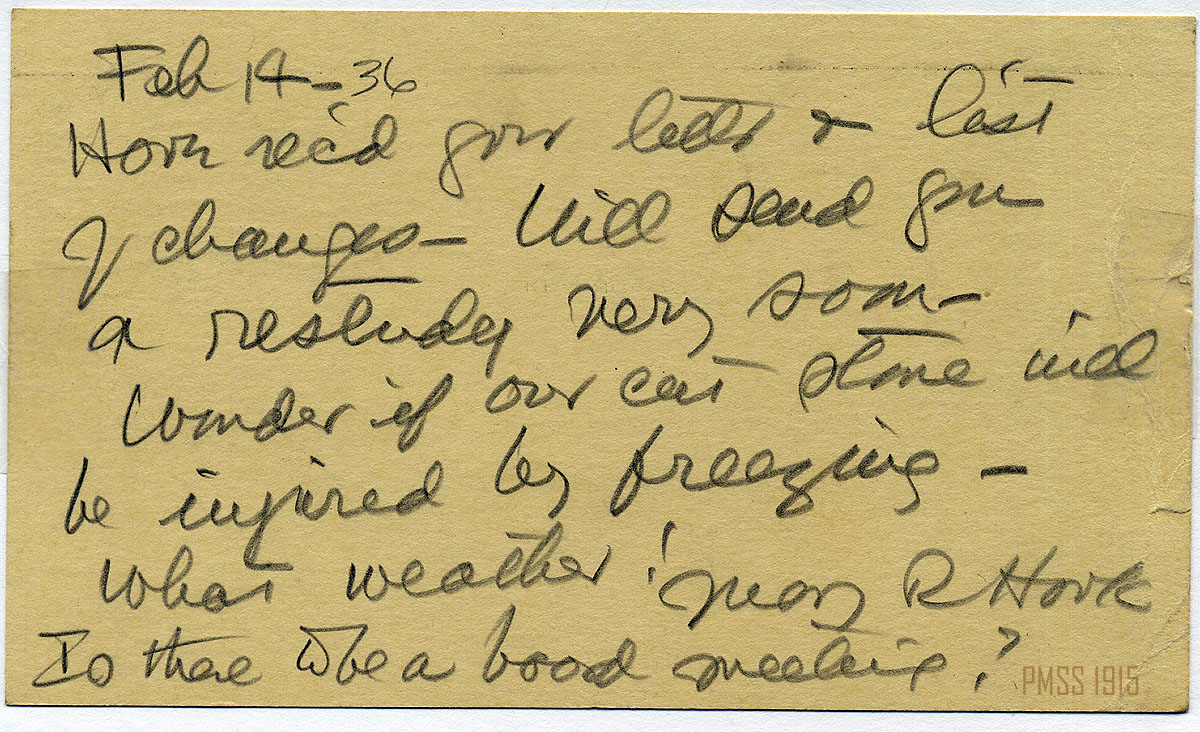 Feb 14-36
Have rec'd your letter & list
of changes- Will send you
a restudy very soon-
Wonder if our cast stone will
be injured by freezing -
What weather! Mary R Hook
Is there to be a board meeting?
PMSS 1915